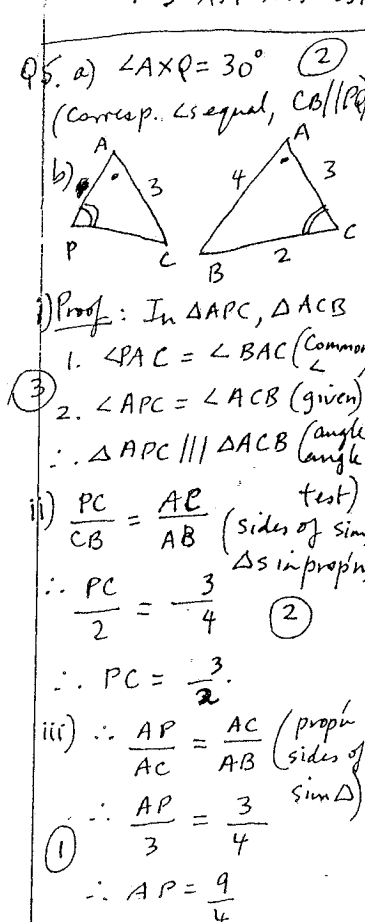 Q5. a) ∠AXQ = 30° (2)
(corresp. ∠s equal, CB//PQ)
b)
A
3
P
C
A
4
3
B
2
C
i) Proof: In ΔAPC, ΔACB
1. ∠PAC = ∠BAC (Common
∠
(3)
2. ∠APC = ∠ACB (given)
∴ ΔAPC /// ΔACB (angle
angle
test)
ii) PC/CB = AC/AB (sides of sim
Δs in prop'n
∴ PC/2 = 3/4 (2)
∴ PC = 3/2.
iii) ∴ AP/AC = AC/AB (prop'n
sides of
sim Δ)
∴ AP/3 = 3/4
(1)
∴ AP = 9/4